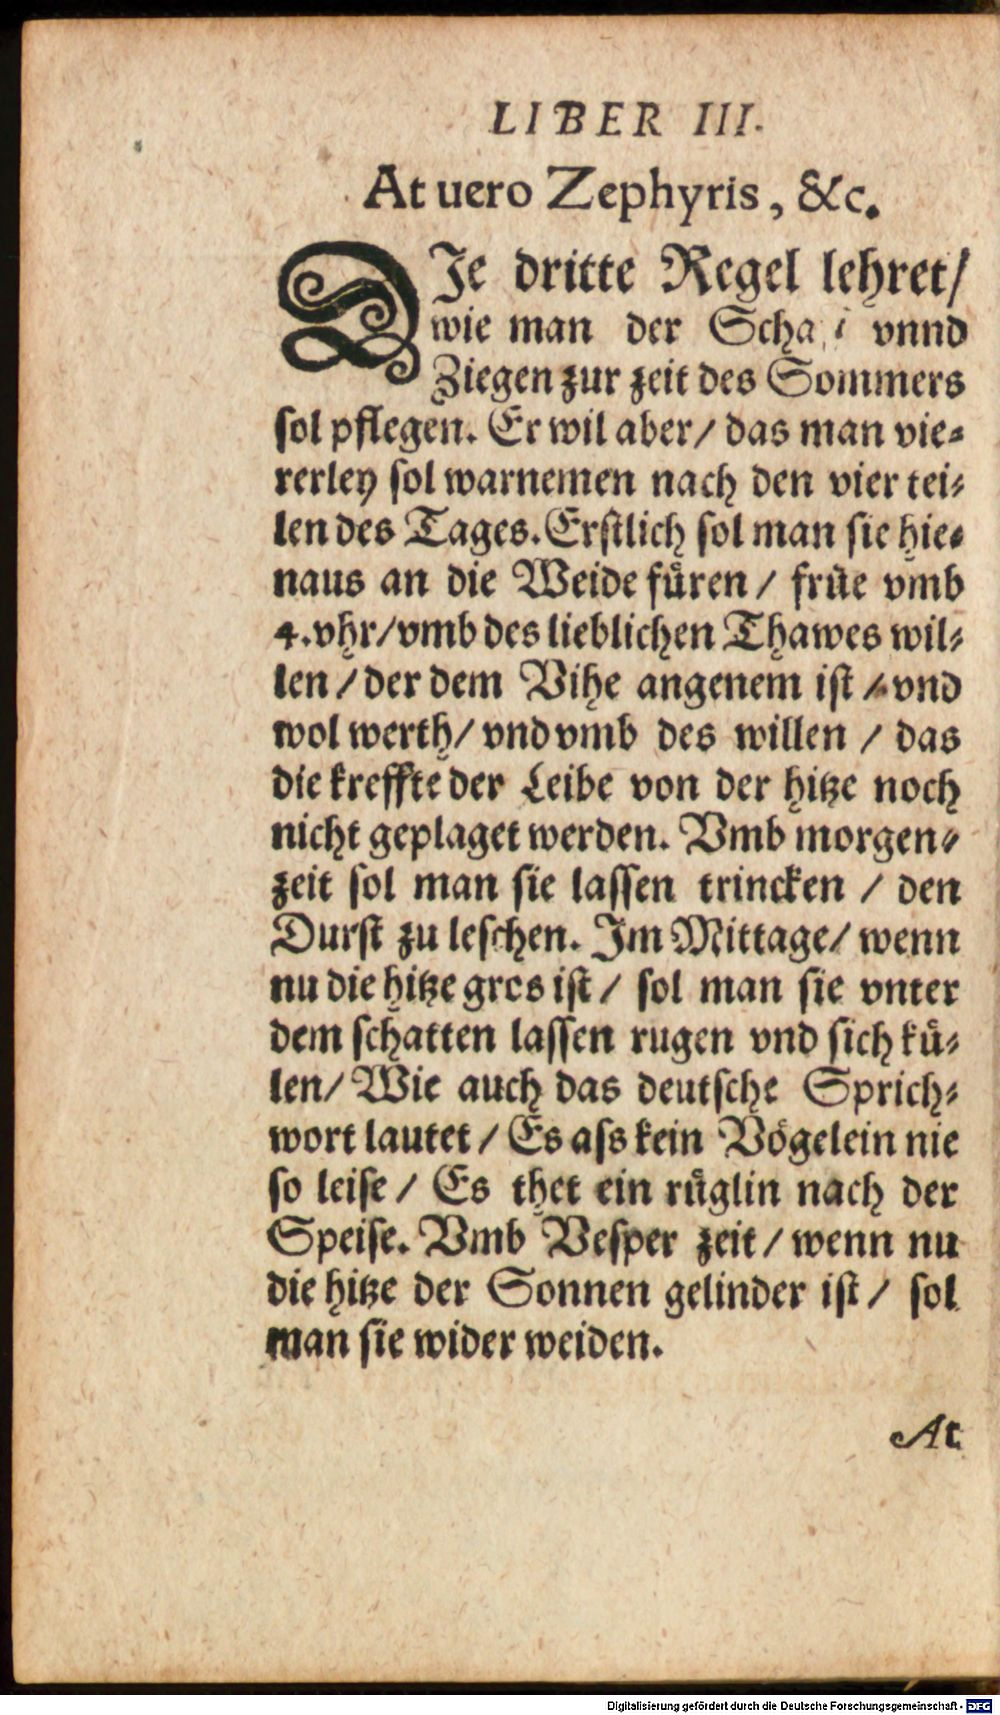 LIBER III.
At uero Zephyris, &c.
DJe dritte Regel lehret/
wie man der vnnd
Ziegen zur zeit des Sommers
sol pflegen. Er wil aber/ das man vie-
rerley sol warnemen nach den vier tei-
len des Tages. Erstlich sol man sie hie-
naus an die Weide fuͤren / fruͤe vmb
4. vhr/ vmb des lieblichen Thawes wil-
len / der dem Vihe angenem ist / vnd
wol werth/ vnd vmb des willen / das
die kreffte der Leibe von der hitze noch
nicht geplaget werden. Vmb morgen-
zeit sol man sie lassen trincken / den
Durst zu leschen. Jm Mittage/ wenn
nu die hitze gros ist / sol man sie vnter
dem schatten lassen rugen vnd sich kuͤ-
len/ Wie auch das deutsche Sprich-
wort lautet / Es ass kein Voͤgelein nie
so leise / Es thet ein ruͤglin nach der
Speise. Vmb Vesper zeit / wenn nu
die hitze der Sonnen gelinder ist / sol
man sie wider weiden.
At
Digitalisierung gefördert durch die Deutsche Forschungsgemeinschaft - DFG